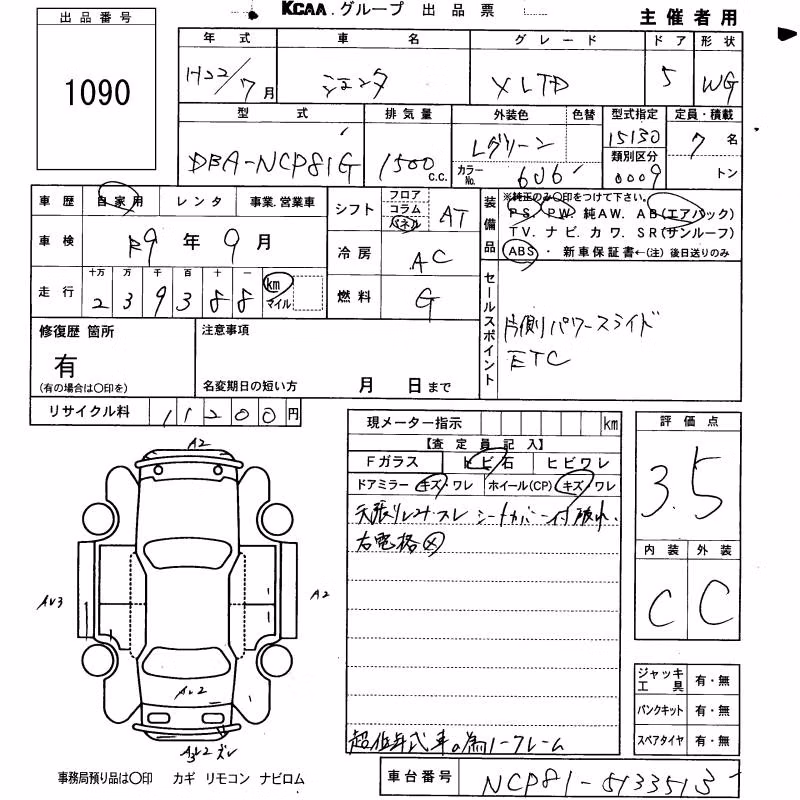 KCAA.グループ 出品票
主催者用
出品番号
1090
年式 車名 グレード ドア 形状
H22/7月 シエンタ XLTD 5 WG
型式 排気量 外装色 色替 型式指定 定員・積載
DBA-NCP81G 1500 c.c. Lグリーン 15130 7名
カラーNo. 6U6 類別区分 0009 トン
車歴 自家用 レンタ 事業.営業車
車検 R9年9月
走行 十万 万 千 百 十 一
239388 km マイル
シフト フロア コラム パネル AT
冷房 AC
燃料 G
装備品 ※純正のみ○印をつけて下さい。
PS. PW. 純AW. AB(エアバック)
TV. ナビ. カワ. SR(サンルーフ)
ABS・新車保証書←(注)後日送りのみ
セールスポイント
片側パワースライド
ETC
修復歴 箇所
有
(有の場合は○印を)
注意事項
名変期日の短い方 月 日まで
リサイクル料 11200円
現メーター指示 km
【査定員記入】
Fガラス トビ石 ヒビワレ
ドアミラー キズ・ワレ ホイール(CP) キズ・ワレ
天張りシミ・スレ シートカバー付破れ.
右電格⊗
超低年式車の為ノークレーム
評価点
3.5
内装 外装
C C
A2
AU3
A2
AU2
ジャッキ工具 有・無
パンクキット 有・無
スペアタイヤ 有・無
事務局預り品は○印 カギ リモコン ナビロム
車台番号 NCP81-5133513